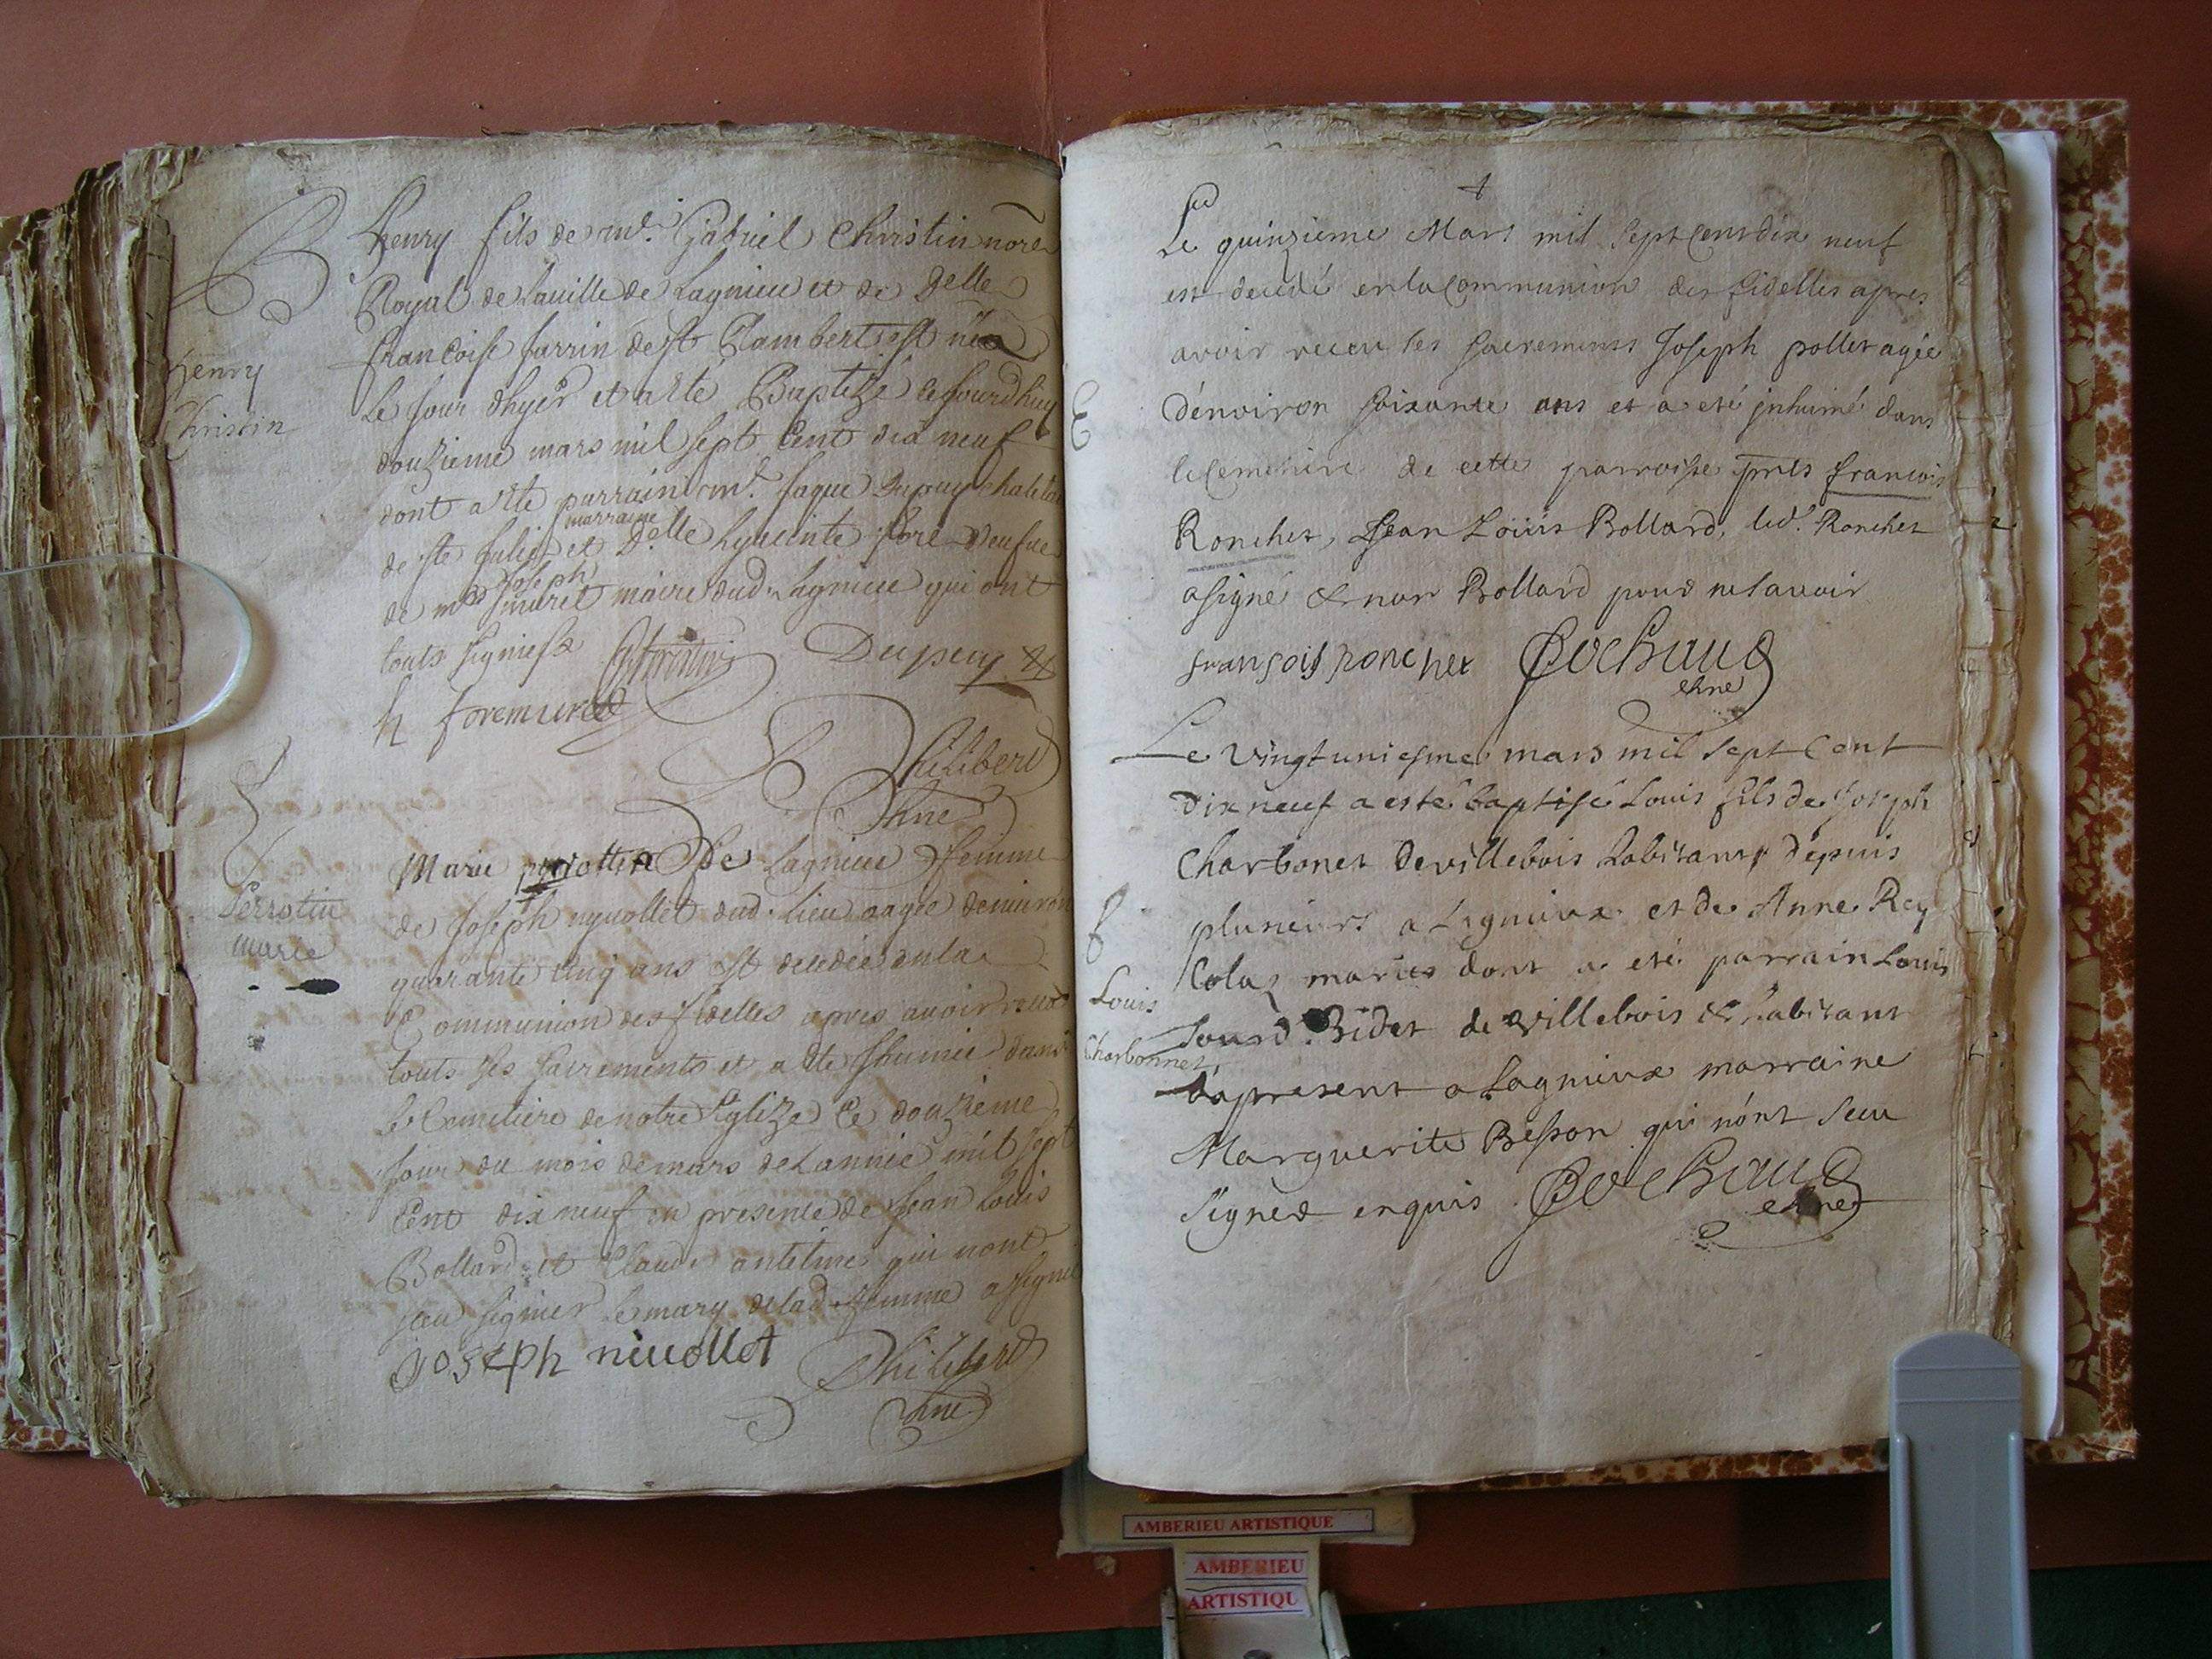 B
henry fils de mr. Gabriel Christin nore
Royal de Lauille de Lagnieu et de Delle
francoise farrin de st Rambert est né
Henry
Christin
Le jour dhyer et a été Baptizé ce jourdhuy
douzieme mars mil sept Cent dix neuf
dont a été parrain mr. jaque Dupuy
de ste julie et Delle hyacinte foré veufue
marraine
de mre muret maire dud. Lagnieu qui ont
joseph
touts signies
Christin
Dupuy
h foremuret
Philibert
Marie de Lagnieu femme
Perrotin
marie
de Joseph niuollet dud. lieu aagée denuiron
quarante cinq ans est decedée en la
Communion des fidelles apres auoir
touts les sacrements et a été inhumée dans
le Cemetiere de notre Eglize ce douzieme
jour du mois de mars de Lannée mil sept
Cent dix neuf en presence de jean Louis
Bollard et Claude antelme qui nont
sceu signier le mary de lad. femme a signé
joseph niuollet
Philibert
Le quinzieme Mars mil sept Cent dix neuf
est decedé en la Communion des fidelles apres
avoir receu les sacremens Joseph pollet agée
d'environ soixante ans et a eté jnhumé dans
le Cemetiere de cette parroisse pnts francois
Ronchet, Jean Loüis Bollard, led. Ronchet
a signé & non Bollard pour ne scavoir
françois ronchet
Cochaud
Le vingtuniesme mars mil sept Cent
dix neuf a esté baptisé Louis fils de Joseph
Charbonet de villebois habitant depuis
plusieurs a Lagnieux et de Anne Rey
Colas mariés dont a eté parrain Louis
Louis
Charbonnet
Bidet de villebois & habitant
a present a Lagnieux marraine
Marguerite Besson qui n'ont sceu
signer enquis
Cochaud
AMBERIEU ARTISTIQUE
AMBERIEU
ARTISTIQU